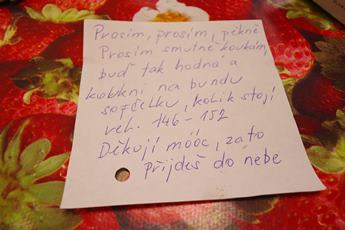 Prosím, prosím, pěkně
Prosím smutně koukám,
buď tak hodná a
koukni na bundu
kolik stojí
vel. 146 - 152
Děkuji mooc, za to
přijdeš do nebe